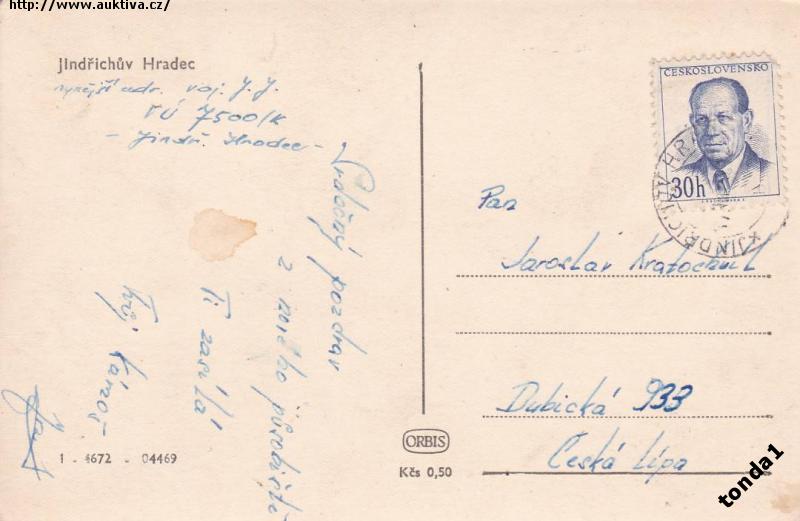 http://www.auktiva.cz/
Jindřichův Hradec
nynější adr. voj. J. J.
VÚ 7500/K
- Jindř. Hradec -
Srdečný pozdrav
z mého působiště
Ti zasílá
Tvůj Kámoš
ČESKOSLOVENSKO
30h
JINDŘICHŮV HRA
Pan
Jaroslav Kratochvíl
Dubická 933
Česká Lípa
ORBIS
Kčs 0,50
1 - 4672 - 04469
tonda1